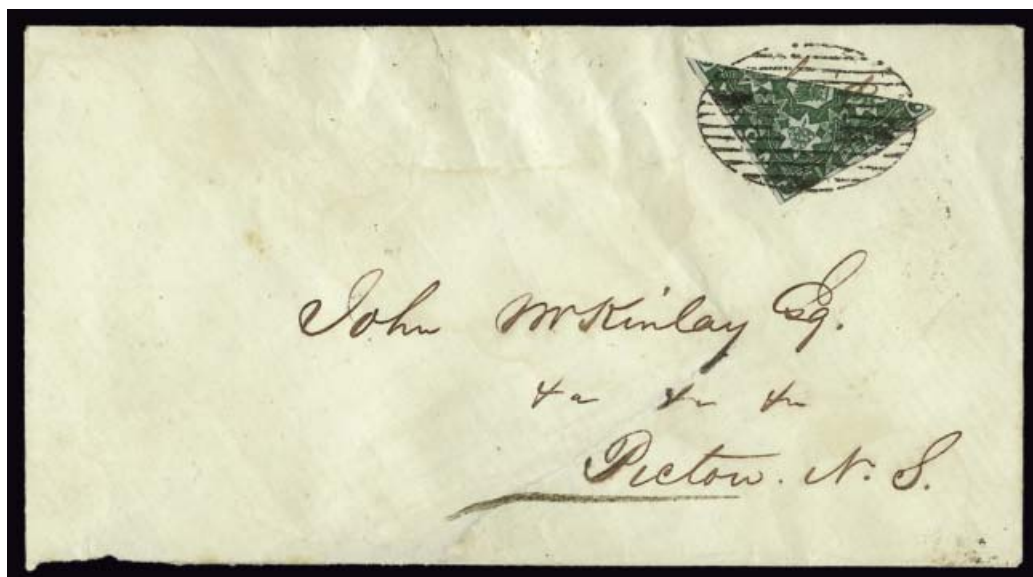 John McKinlay Esq.
&c &c &c
Pictou. N. S.